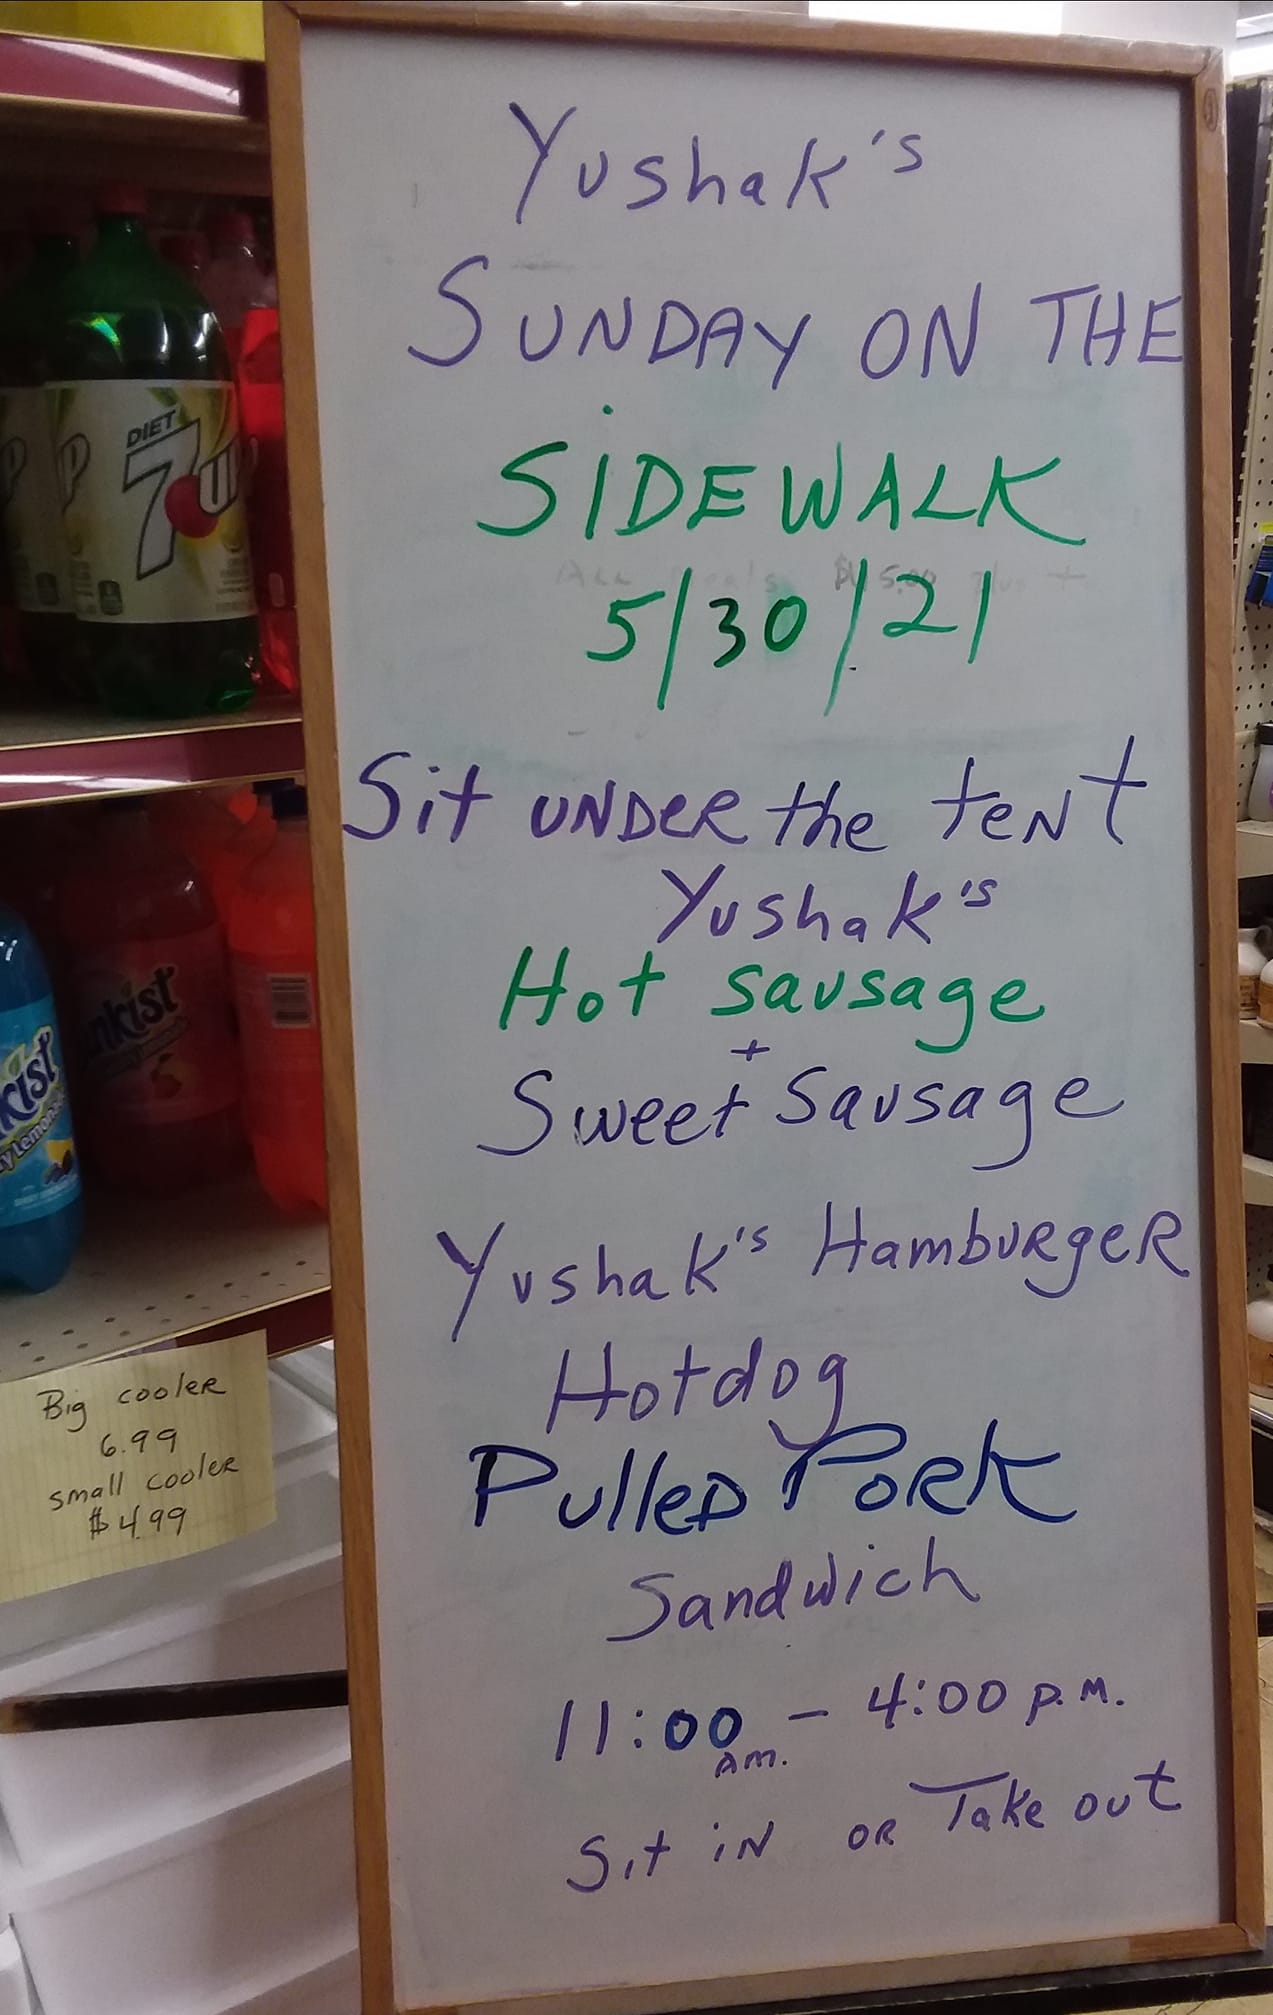 Yushak's
SUNDAY ON THE
SIDEWALK
5/30/21
Sit UNDER the tent
Yushak's
Hot sausage
+
Sweet Sausage
Yushak's Hamburger
Hotdog
Pulled Pork
Sandwich
11:00 AM. - 4:00 P.M.
Sit in OR Take out
DIET
7UP
Big cooler
6.99
small cooler
$4.99